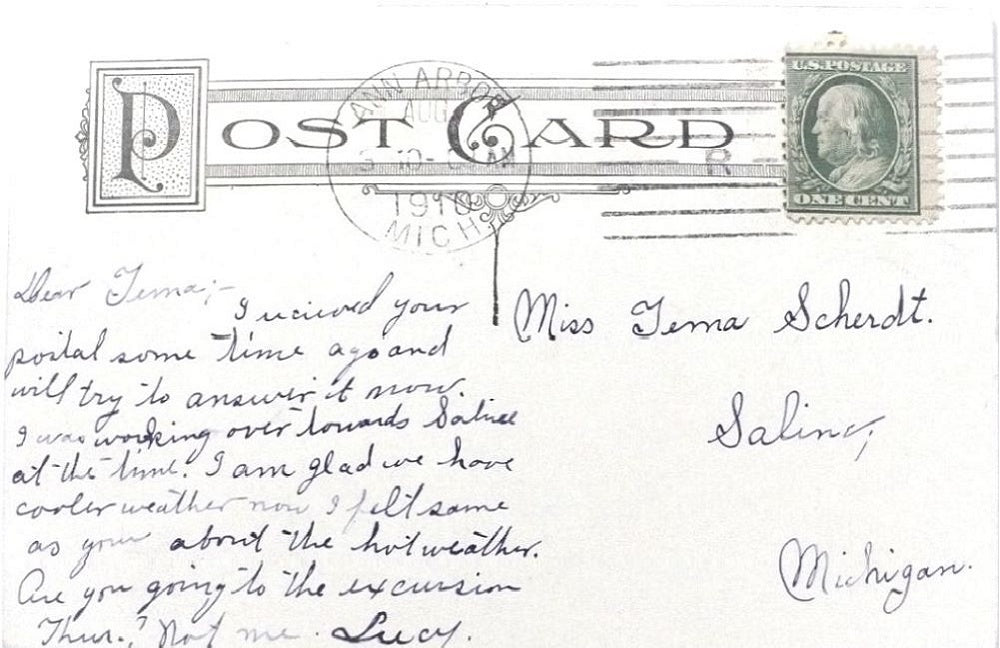 POST CARD
ANN ARBOR
AUG
3 30 - AM
1910
MICH.
R
U.S. POSTAGE
ONE CENT
Dear Tema;-
I recieved your
postal some time ago and
will try to answer it now.
I was working over towards Saline
at the time. I am glad we have
cooler weather now I felt same
as you about the hot weather.
Are you going to the excursion
Thur.? Not me. Lucy.
Miss Tema Scherdt.
Saline,
Michigan.